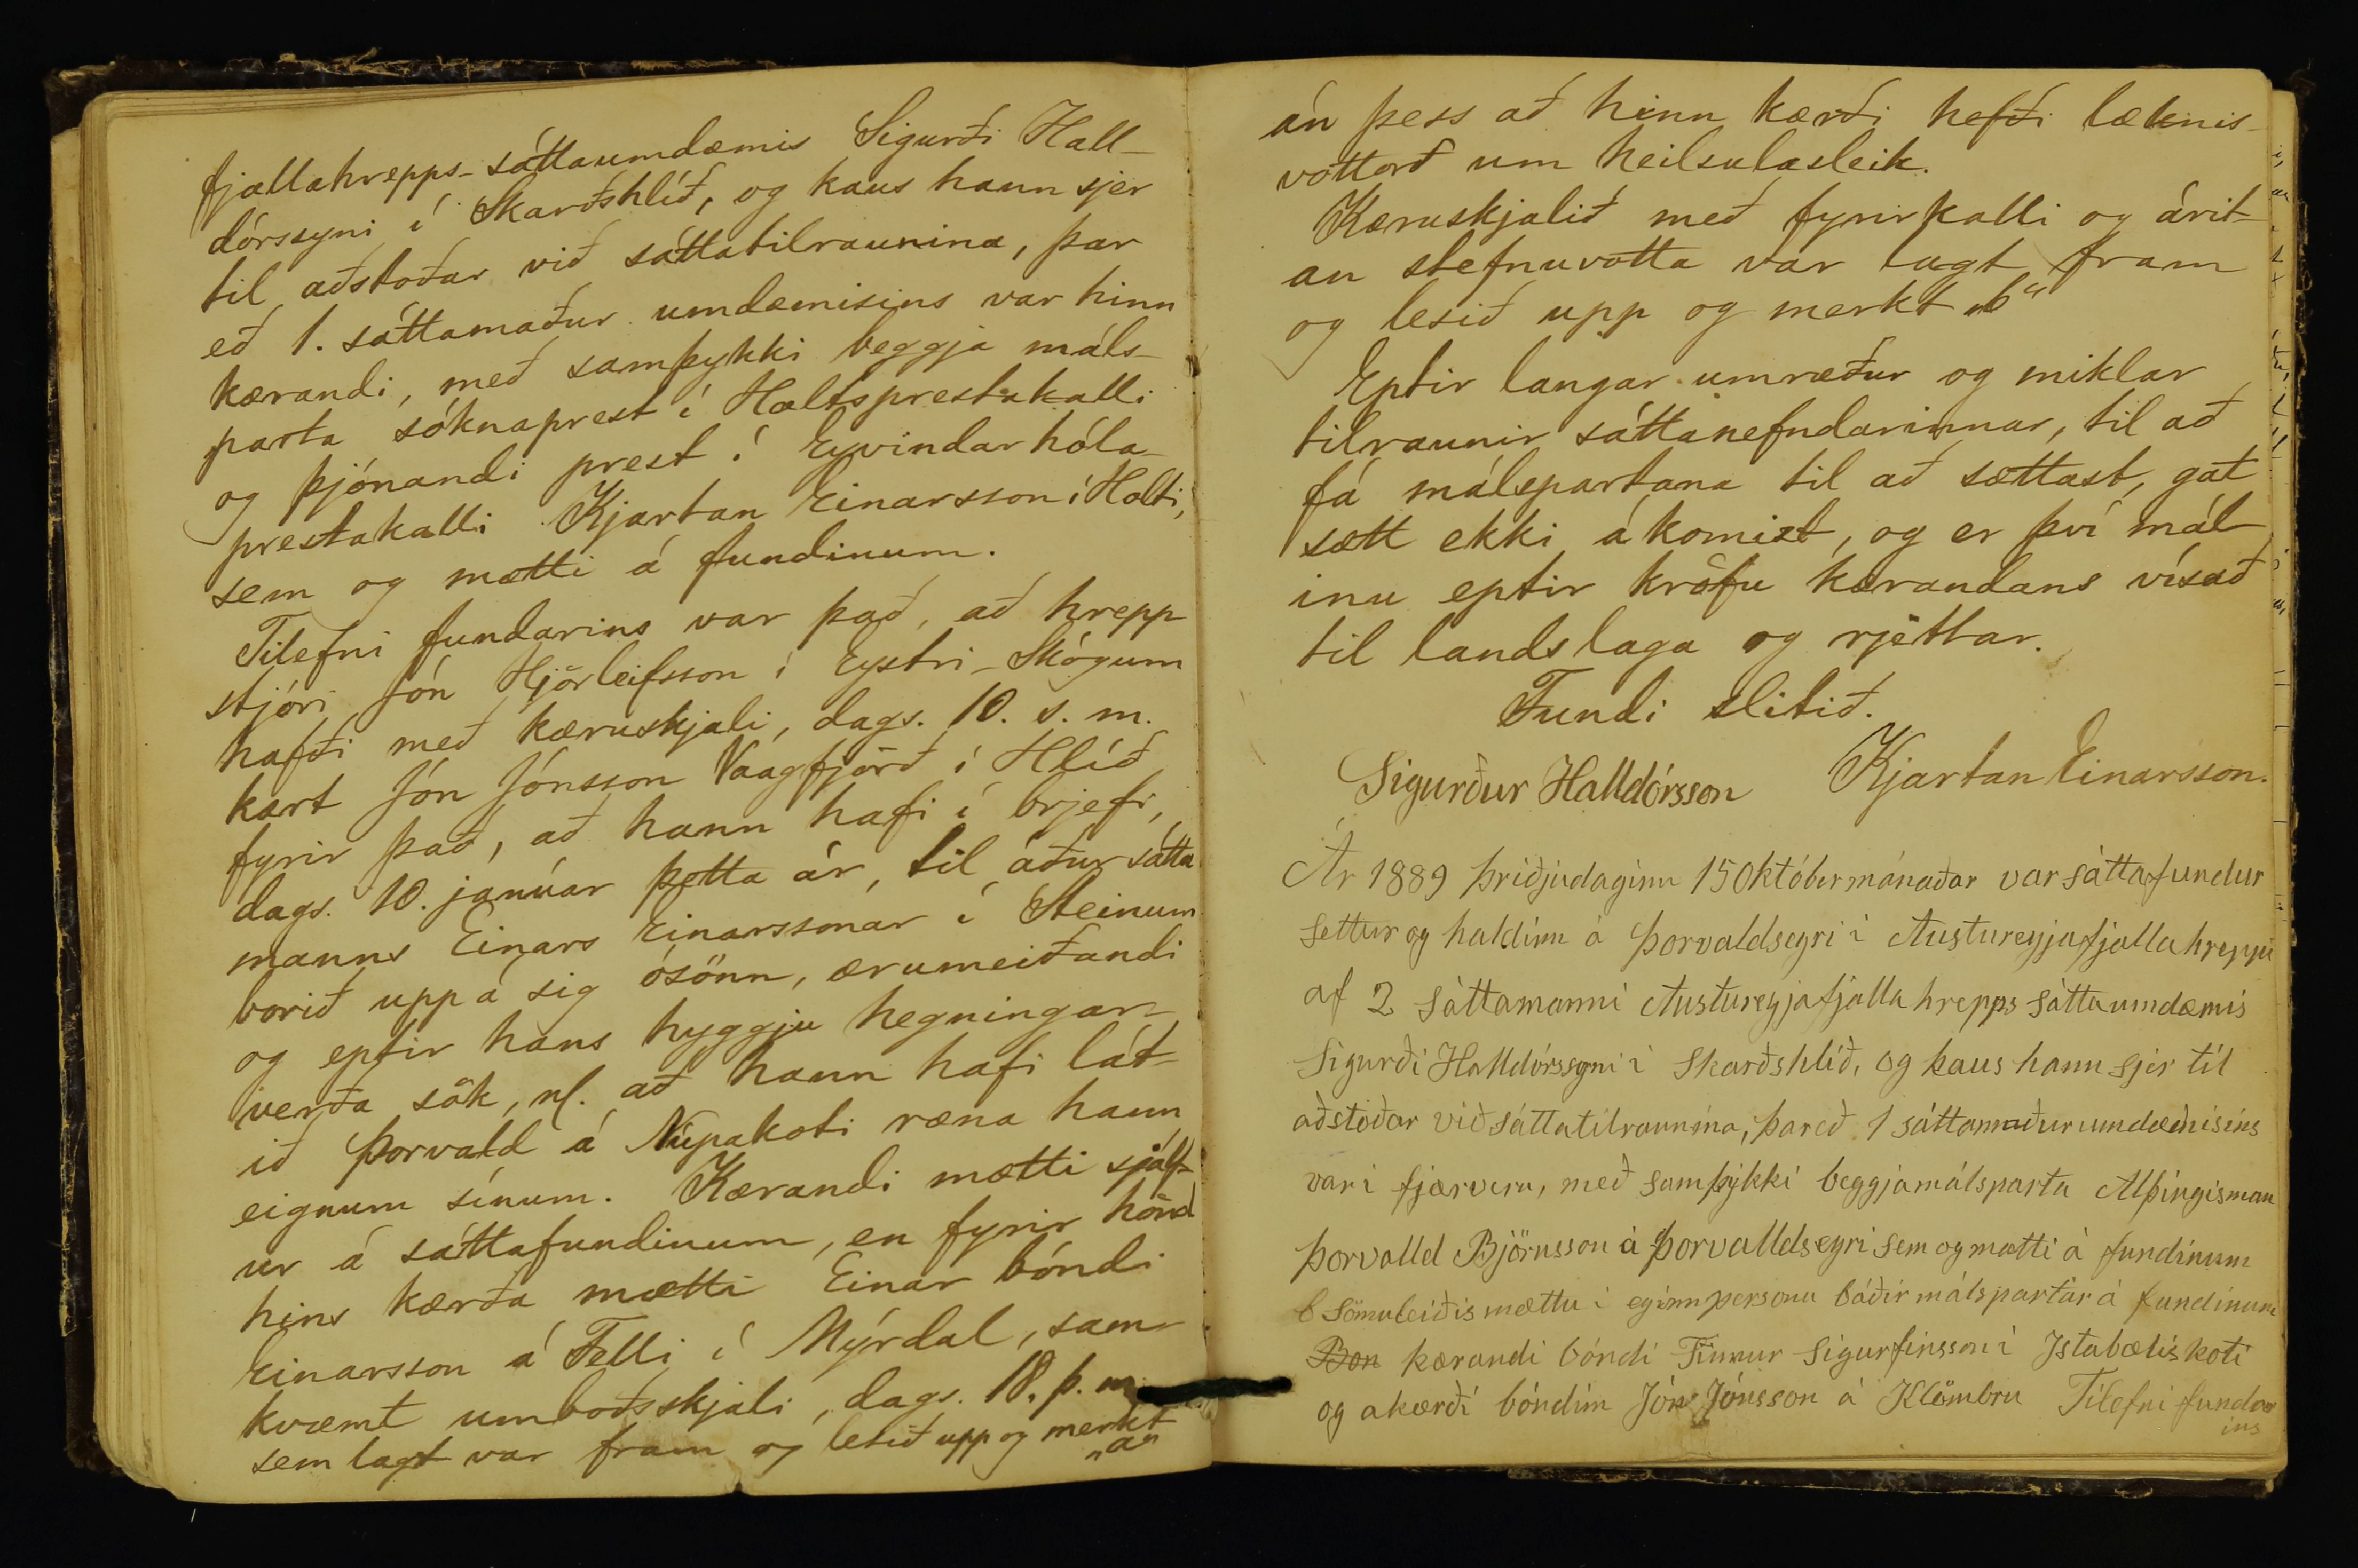 fjallahrepps-sáttaumdæmis Sigurði Hall-
dórssyni í Skarðshlíð, og kaus hann sjer
til aðstoðar við sáttatilraunina, þar
eð 1. sáttamaður umdæmisins var hinn
kærandi, með samþykki beggja máls-
parta sóknaprest í Holtsprestakalli
og þjónandi prest í Eyvindarhóla-
prestakalli Kjartan Einarsson í Holti,
sem og mætti á fundinum.
Tilefni fundarins var það, að hrepp
stjóri Jón Hjörleifsson í Eystri-Skógum
hafði með kæruskjali, dags. 10. s. m.
kært Jón Jónsson Vaagfjörð í Hlíð
fyrir það, að hann hafi í brjefi,
dags. 10. janúar þetta ár, til áður sátta
manns Einars Einarssonar í Steinum
borið upp á sig ósönn, ærumeiðandi
og eptir hans hyggju hegningar-
verða sök, nl. að hann hafi lát-
ið Þorvald á Núpakoti ræna hann
eignum sínum. Kærandi mætti sjálf-
ur á sáttafundinum, en fyrir hönd
hins kærða mætti Einar bóndi
Einarsson á Felli í Mýrdal, sam-
kvæmt umboðsskjali, dags. 18. þ. m.
sem lagt var fram og lesið upp og merkt
„a“
án þess að hinn kærði hefði læknis-
vottorð um heilsulasleik.
Kæruskjalið með fyrirkalli og árit-
an stefnuvotta var lagt fram
og lesið upp og merkt „b“
Eptir langar umræður og miklar
tilraunir sáttanefndarinnar, til að
fá málspartana til að sættast, gat
sætt ekki ákomizt, og er því mál
inu eptir kröfu kærandans vísað
til landslaga og rjettar.
Fundi slitið.
Sigurður Halldórsson Kjartan Einarsson.
Ár 1889 þriðjudaginn 15 Október mánaðar var sáttafundur
settur og haldinn á Þorvaldseyri í Austureyjafjallahreppi
af 2 sáttamanni Austureyjafjalla hrepps sáttaumdæmis
Sigurði Halldórssyni í Skarðshlíð, og kaus hann sjer til
aðstoðar við sáttatilraunina, þareð 1 sáttamaður umdæmisins
var í fjærveru, með samþykki beggja málsparta Alþingisman
Þorvalld Björnsson á Þorvalldseyri sem og mætti á fundinum
Sömuleiðis mættu í eginn persónu báðir málspartar á fundinum
Bon kærandi bóndi Finnur Sigurfinsson í Ystabæliskoti
og ákærði bóndin Jón Jónsson á Klömbru Tilefni fundar
ins